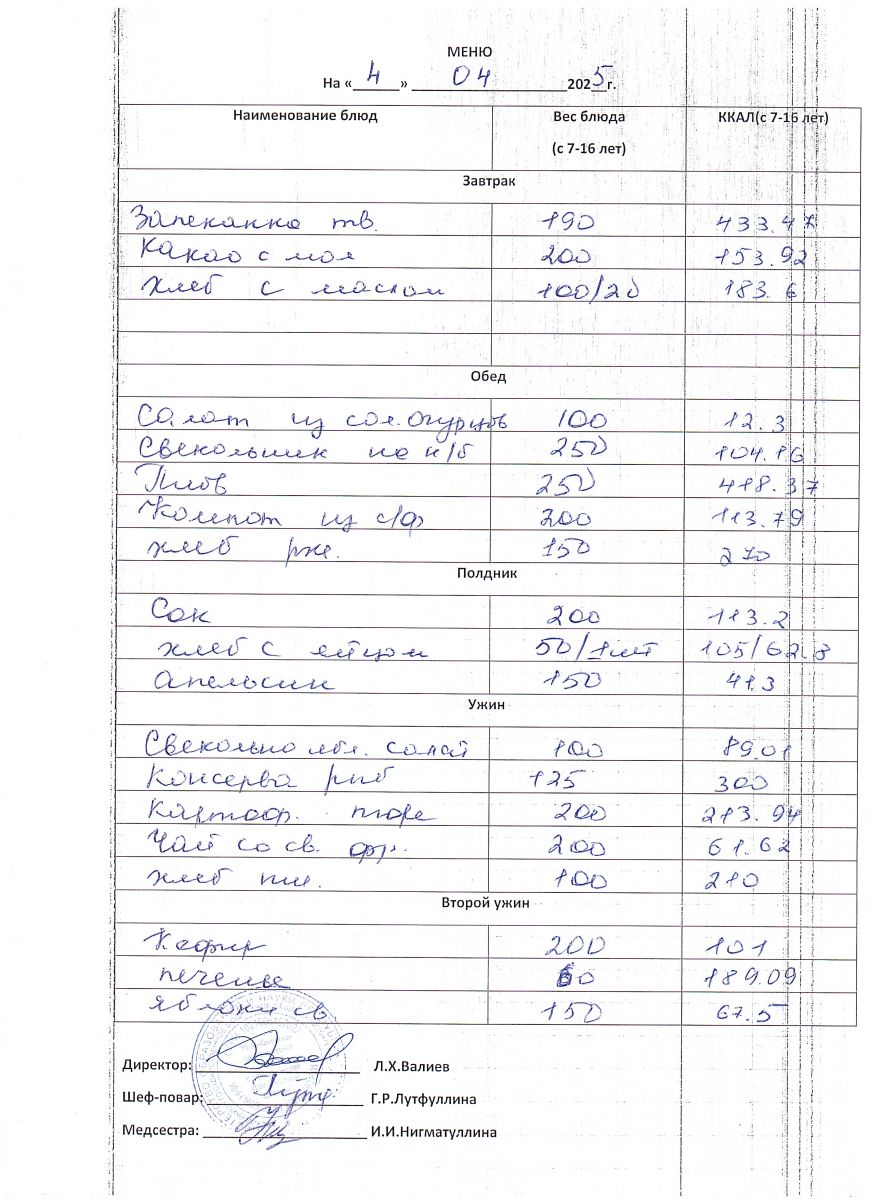 МЕНЮ
На «4» 04 2025 г.
Наименование блюд Вес блюда (с 7-16 лет) ККАЛ(с 7-16 лет)
Завтрак
Запеканка тв. 190 433.47
Какао с мол 200 153.92
хлеб с маслом 100/20 183.6
Обед
Салат из сол. огурцов 100 12.3
Свекольник на к/б 250 104.16
Плов 250 418.37
Компот из с/ф 200 113.79
хлеб рж. 150 270
Полдник
Сок 200 113.2
хлеб с яйцом 50/1шт 105/62.8
апельсин 150 41.3
Ужин
Свекольно ябл. салат 100 89.01
Консерва рыб 125 300
Картоф. пюре 200 213.94
Чай со св. фр. 200 61.62
хлеб пш. 100 210
Второй ужин
Кефир 200 101
печенье 60 189.09
яблоки св 150 67.5
Директор: Л.Х.Валиев
Шеф-повар: Г.Р.Лутфуллина
Медсестра: И.И.Нигматуллина